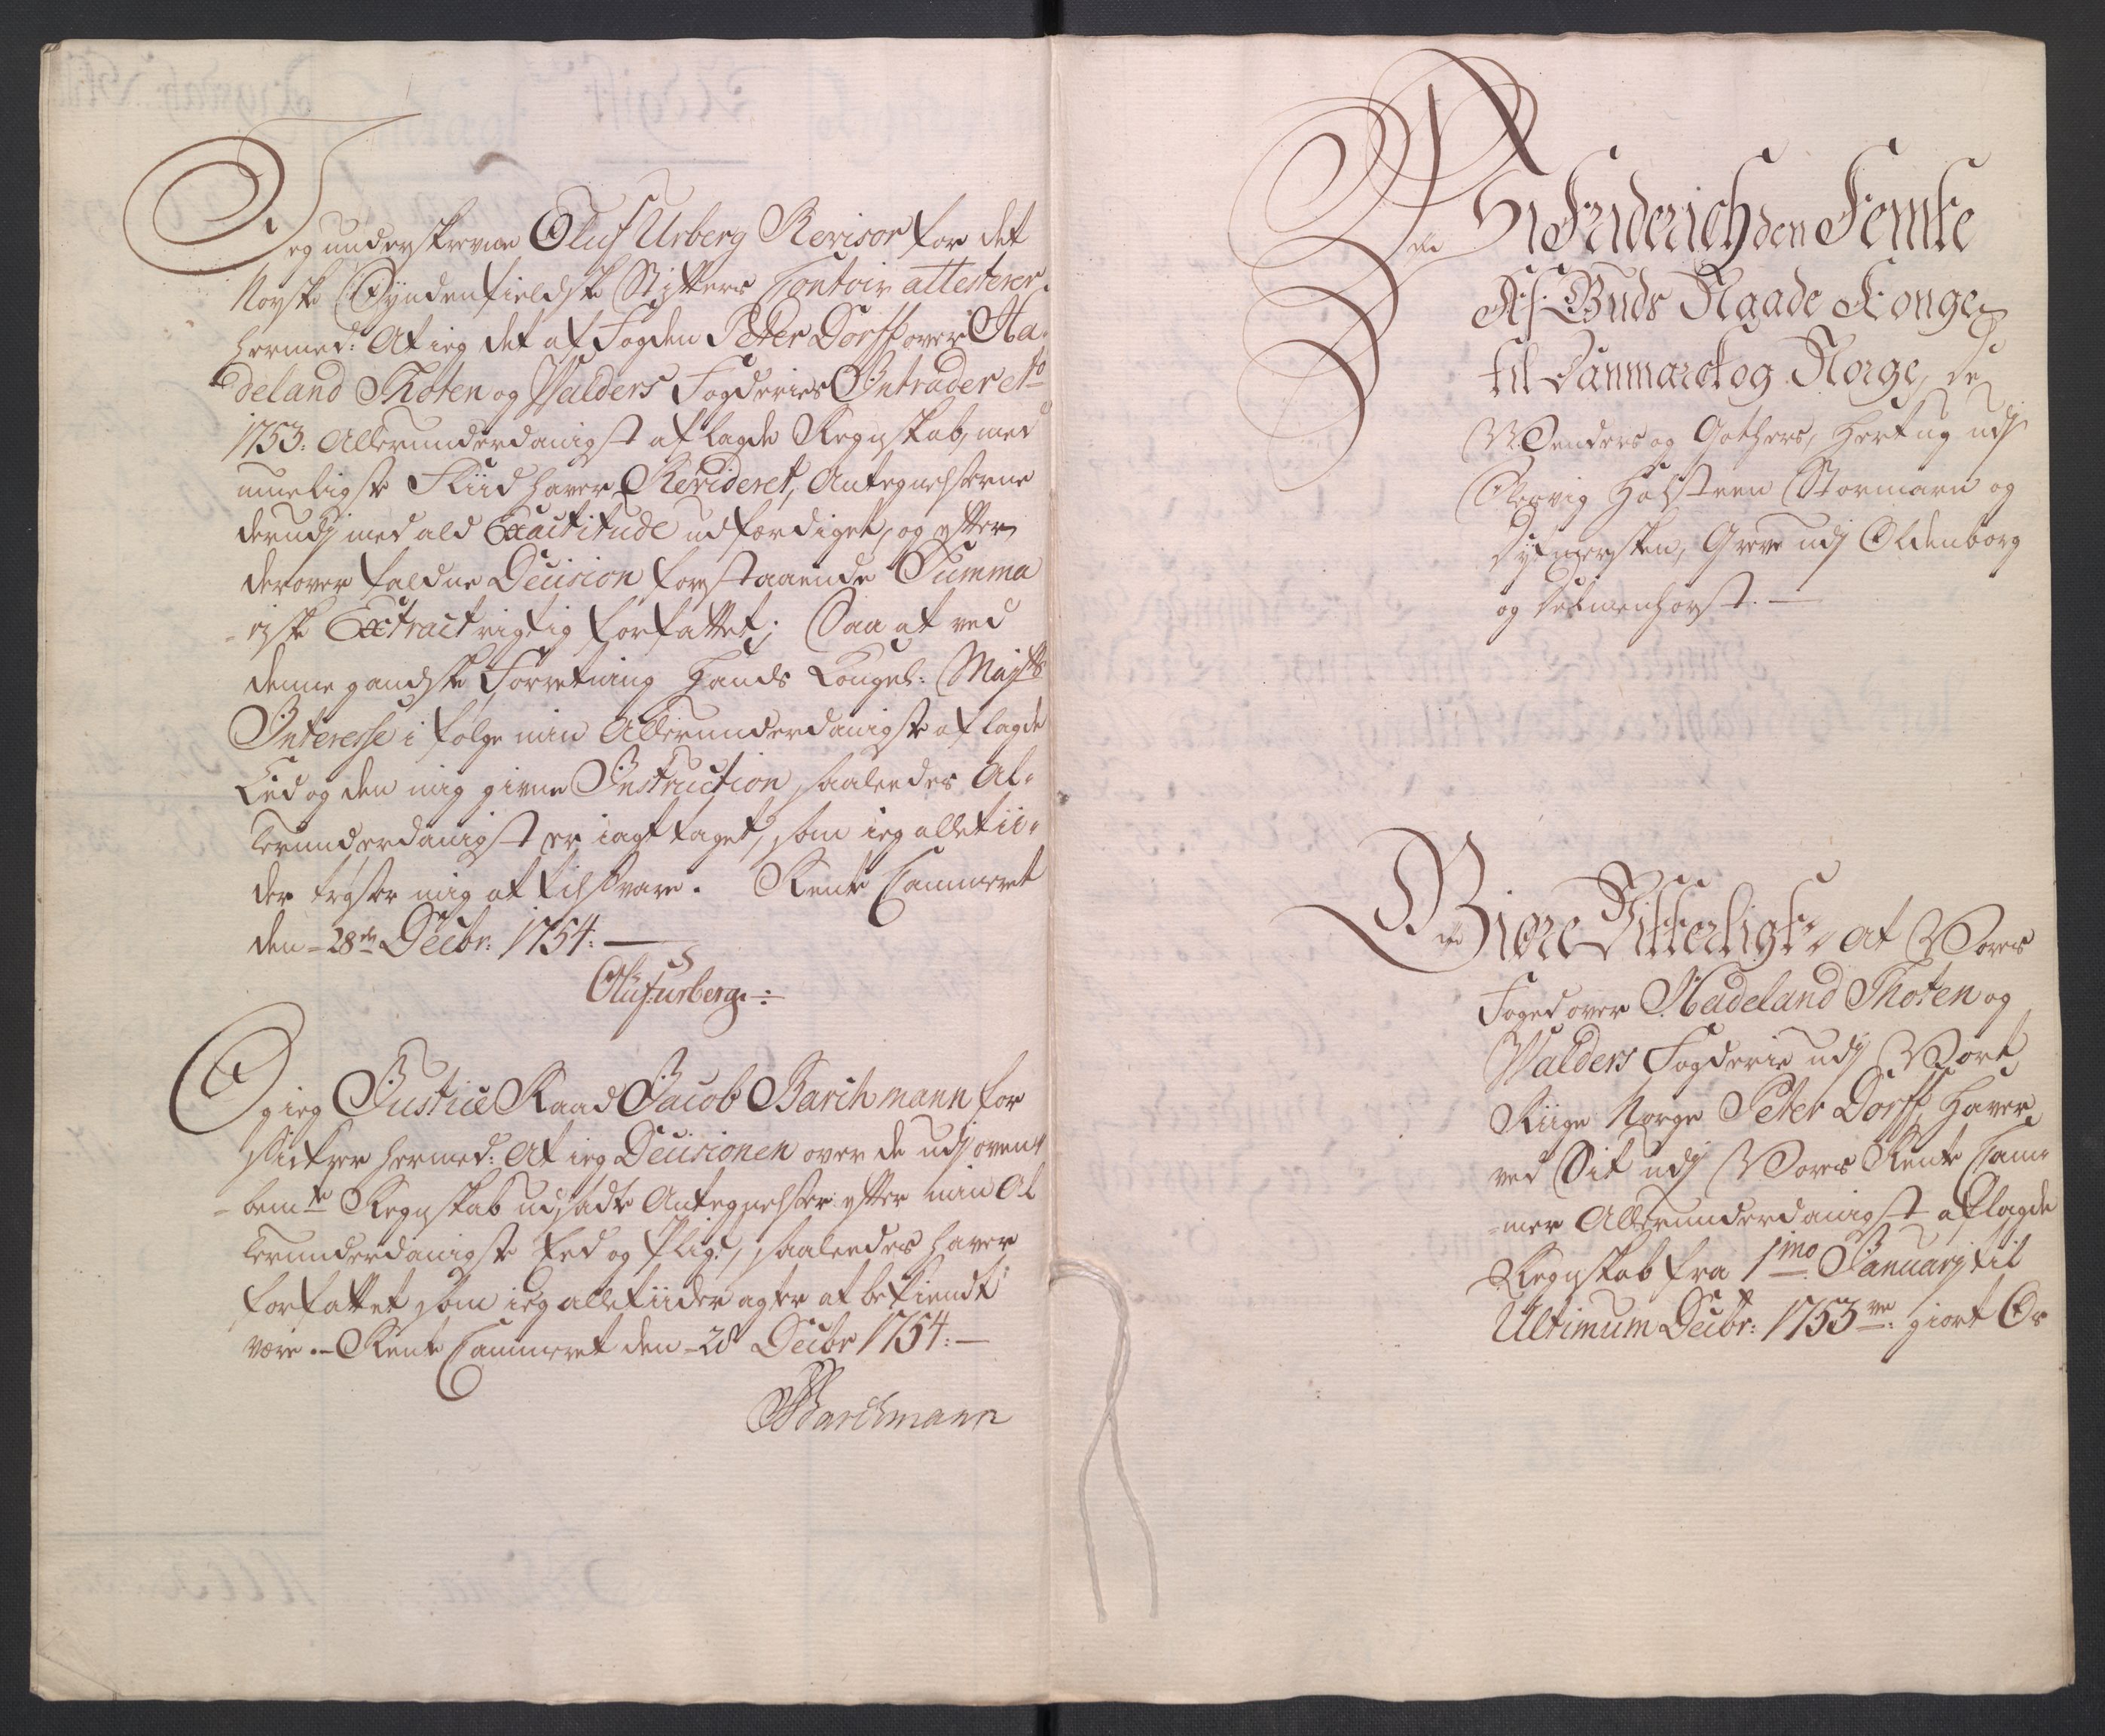 Jeg underskrevne Oluf Urberg Revisor for det
Norske Syndenfieldske Stifters Contoir attesterer
hermed: At ieg det af Fogden Peter Dorff over Ha-
deland Thoten og Walders Fogderies Intrader &c
1753: Allerunderdanigst aflagde Regnskab, med
mueligste Fliid haver Revideret, Antegnelserne
derudj med ald Exactitude udfærdiget, og efter
derover faldne Decision forestaaende Summa
-riske Extract rigtig forfattet; Saa at ved
denne gandske Forretning Hands Kongel: Mayts
Interesse i følge min Allerunderdanigste aflagde
Eed og den mig givne Instruction, saaledes Al-
lerunderdanigst er iagttaget, som ieg alletii-
der trøster mig at tilsvare. Rente Cammeret
den 28de Decbr: 1754:
Oluf Urberg:
Og ieg Justice Raad Jacob Barchmann for
sickrer hermed: At ieg Decisionen over de udj oven-
-bemte Regnskab udsadte Antegnelser efter min Al
lerunderdanigste Eed og Pligt, saaledes haver
forfattet som ieg alletiider agter at bekiendt
være. Rente Cammeret den 28 Decbr 1754:
JBarchmann
Wi Friderich den Femte
Af Guds Naade Konge
til Danmarck og Norge, de
Wenders og Gothers, Hertug udj
Slesvig Holsteen Stormarn og
Dytmersken, Greve udj Oldenborg
og Delmenhorst.
Giøre Vitterligt, at Vores
Foged over Hadeland Thoten og
Walders Fogderie udj Vort
Riige Norge Peter Dorff, haver
ved Sit udj Vores Rente Cam-
-mer Allerunderdanigst aflagde
Regnskab fra 1mo Januarj til
Ultimum Decbr: 1753ve giort Os